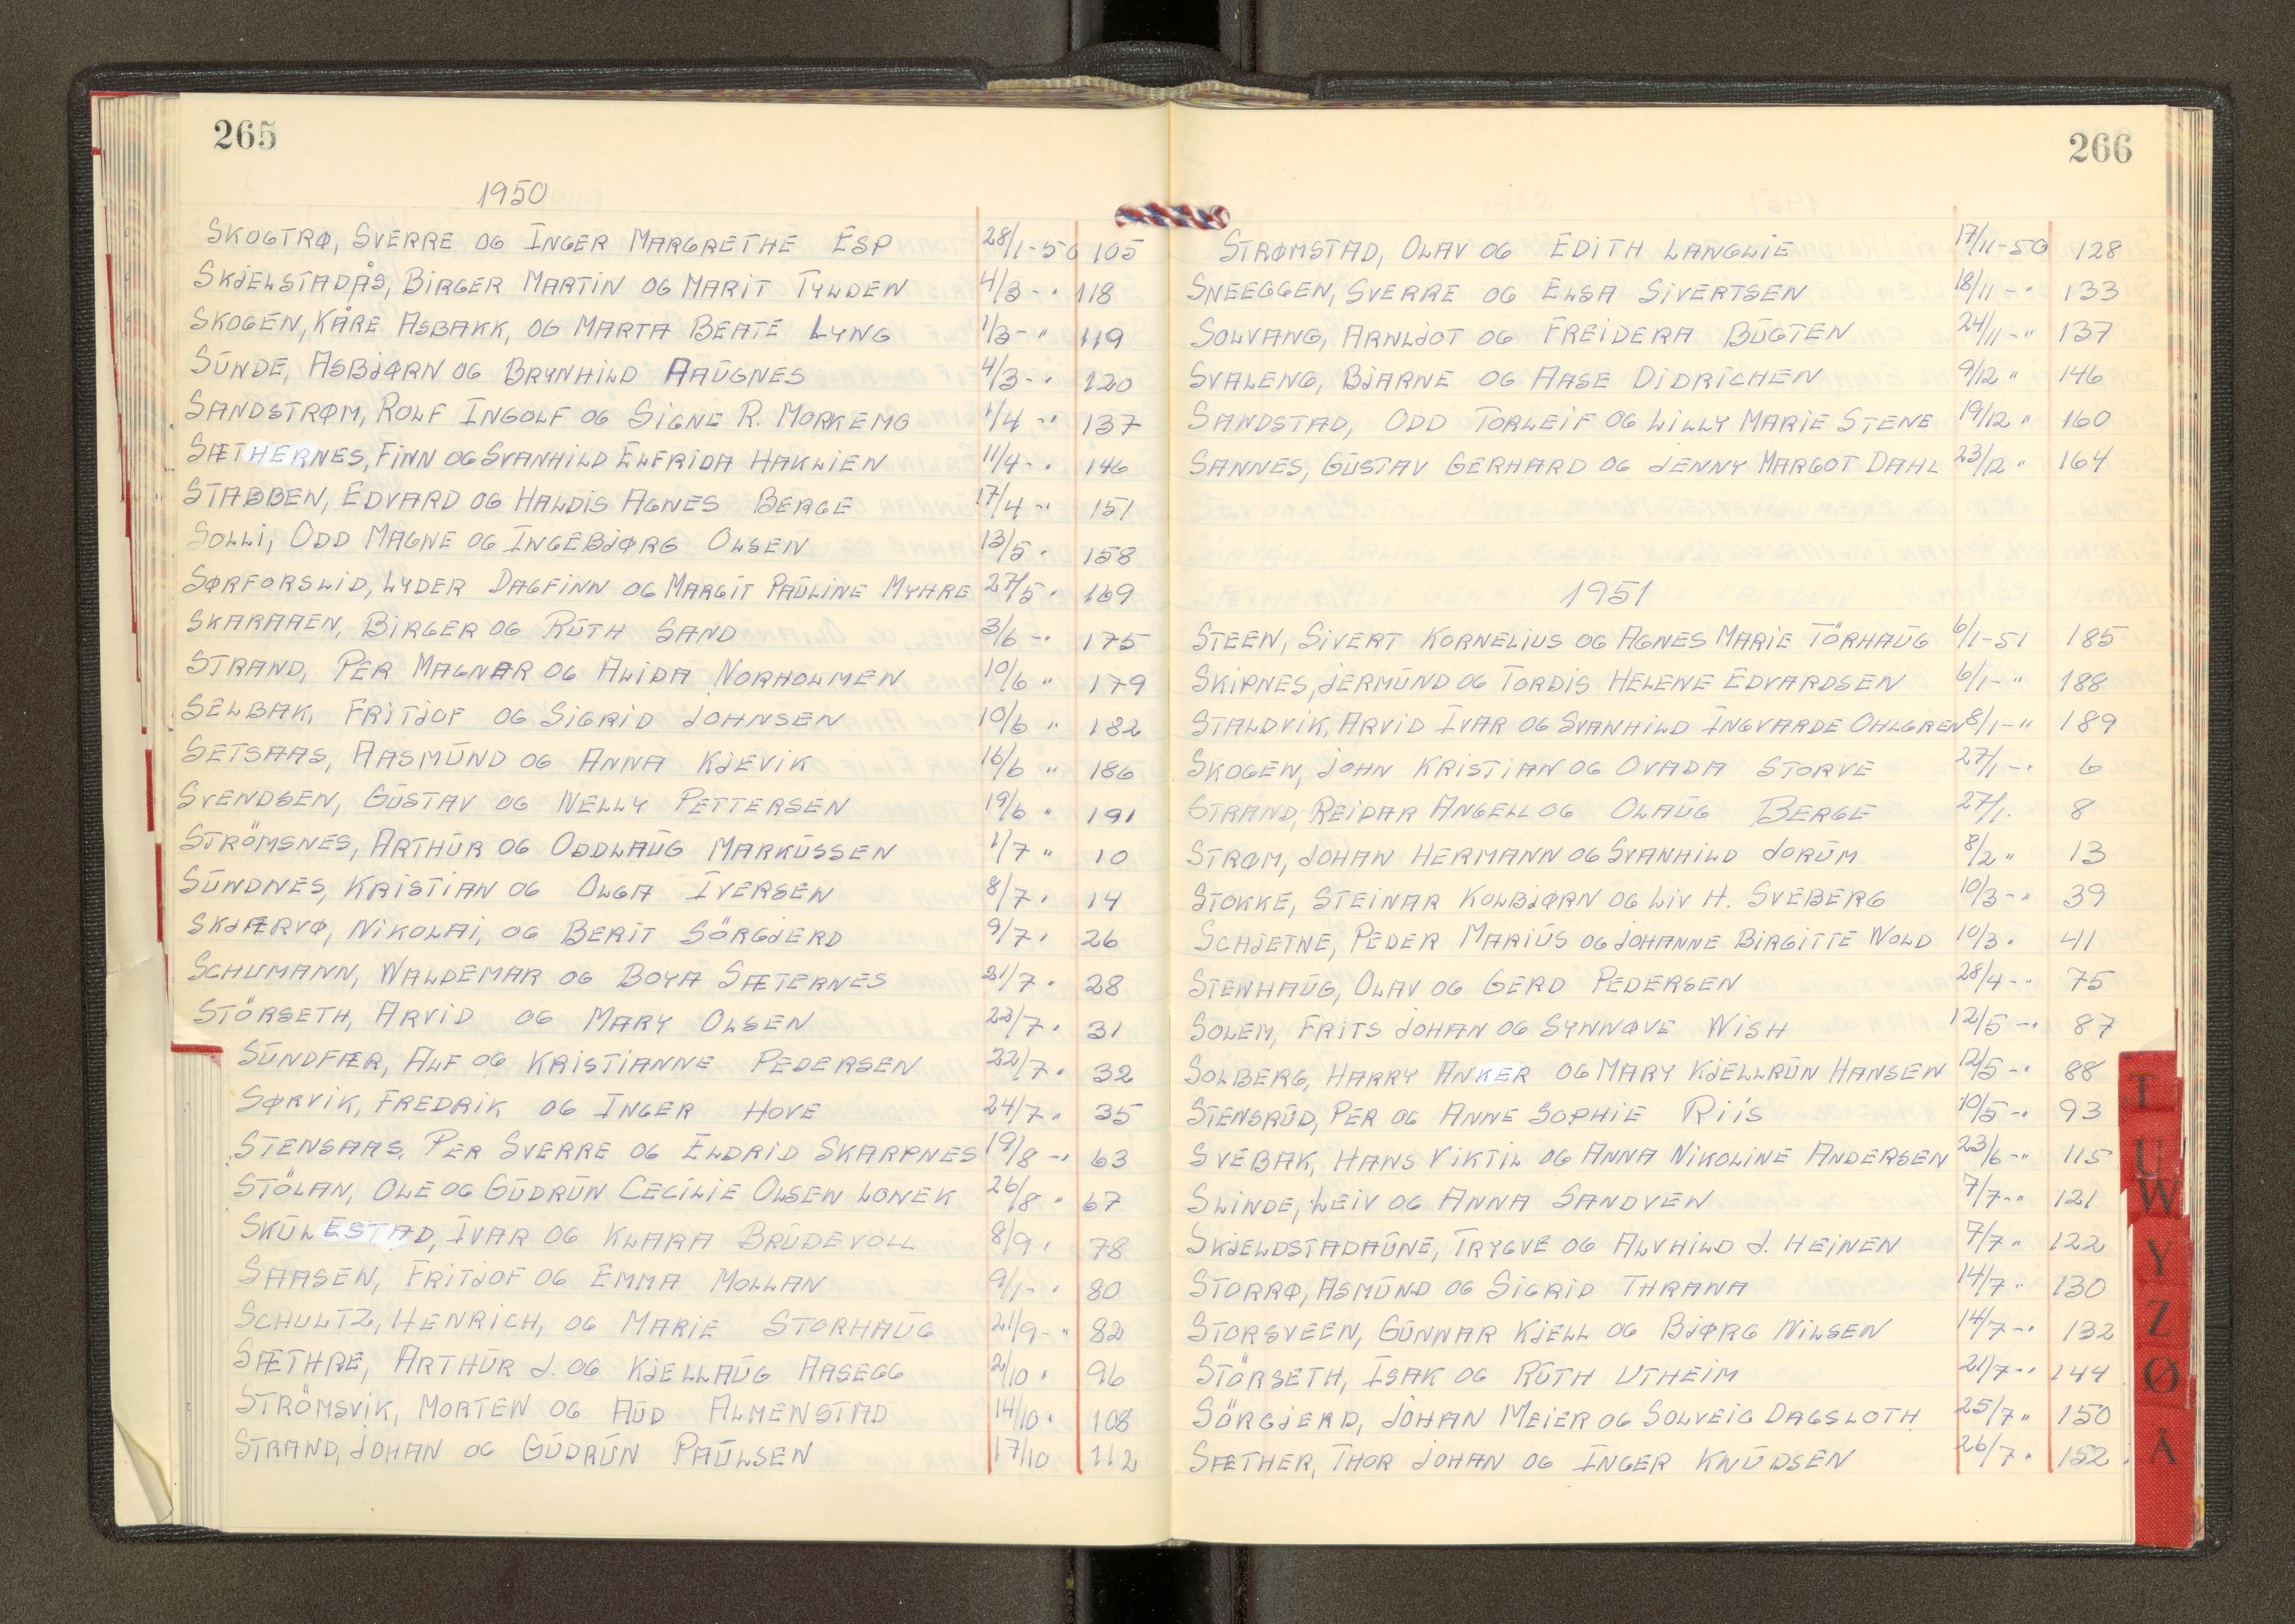 265
1950
SKOGTRØ, SVERRE OG INGER MARGRETHE ESP 28/1-50 105
SKJELSTADÅS, BIRGER MARTIN OG MARIT TYLDEN 4/3-" 118
SKOGEN, KÅRE ASBAKK, OG MARTA BEATE LYNG 1/3-" 119
SŪNDE, ASBJØRN OG BRYNHILD AAŪGNES 4/3-" 120
SANDSTRØM, ROLF INGOLF OG SIGNE R. MORKEMO 1/4-" 137
SÆTHERNES, FINN OG SVANHILD ELFRIDA HAKLIEN 11/4-" 146
STABBEN, EDVARD OG HALDIS AGNES BERGE 17/4-" 151
SOLLI, ODD MAGNE OG INGEBJØRG OLSEN 13/5 " 158
SØRFORSLID, LYDER DAGFINN OG MARGIT PAŪLINE MYHRE 27/5 " 169
SKARAAEN, BIRGER OG RŪTH SAND 3/6-" 175
STRAND, PER MAGNAR OG ALIDA NORHOLMEN 10/6 " 179
SELBAK, FRITJOF OG SIGRID JOHNSEN 10/6 " 182
SETSAAS, AASMŪND OG ANNA KJEVIK 16/6 " 186
SVENDSEN, GŪSTAV OG NELLY PETTERSEN 19/6 " 191
STRÖMSNES, ARTHŪR OG ODDLAŪG MARKŪSSEN 1/7 " 10
SŪNDNES, KRISTIAN OG OLGA IVERSEN 8/7 " 14
SKJÆRVØ, NIKOLAI, OG BERIT SÖRGJERD 9/7 " 26
SCHUMANN, WALDEMAR OG BOYA SÆTERNES 21/7 " 28
STÖRSETH, ARVID OG MARY OLSEN 22/7 " 31
SŪNDFÆR, ALF OG KRISTIANNE PEDERSEN 22/7 " 32
SØRVIK, FREDRIK OG INGER HOVE 24/7 " 35
STENSAAS, PER SVERRE OG ELDRID SKARPNES 19/8-" 63
STÖLAN, OLE OG GŪDRŪN CECILIE OLSEN LONEK 26/8 " 67
SKŪLESTAD, IVAR OG KLARA BRŪDEVOLL 8/9 " 78
SAASEN, FRITJOF OG EMMA MOLLAN 9/1-" 80
SCHULTZ, HENRICH, OG MARIE STORHAŪG 21/9-" 82
SÆTHRE, ARTHŪR J. OG KJELLAŪG AASEGG 2/10 " 96
STRÖMSVIK, MORTEN OG AŪD ALMENSTAD 14/10 " 108
STRAND, JOHAN OG GŪDRŪN PAŪLSEN 17/10 112
266
STRØMSTAD, OLAV OG EDITH LANGLIE 17/11-50 128
SNEEGGEN, SVERRE OG ELSA SIVERTSEN 18/11-" 133
SOLVANG, ARNLJOT OG FREIDERA BŪGTEN 24/11-" 137
SVALENG, BJARNE OG AASE DIDRICHEN 9/12 " 146
SANDSTAD, ODD TORLEIF OG LILLY MARIE STENE 19/12 " 160
SANNES, GŪSTAV GERHARD OG JENNY MARGOT DAHL 23/12 " 164
1951
STEEN, SIVERT KORNELIUS OG AGNES MARIE TÖRHAŪG 6/1-51 185
SKIPNES, JERMŪND OG TORDIS HELENE EDVARDSEN 6/1-" 188
STALDVIK, ARVID IVAR OG SVANHILD INGVARDE OHLGREN 8/1-" 189
SKOGEN, JOHN KRISTIAN OG OVADA STORVE 27/1-" 6
STRAND, REIDAR ANGELL OG OLAŪG BERGE 27/1. 8
STRØM, JOHAN HERMANN OG SVANHILD JORŪM 8/2 " 13
STOKKE, STEINAR KOLBJØRN OG LIV H. SVEBERG 10/3-" 39
SCHJETNE, PEDER MARIŪS OG JOHANNE BIRGITTE WOLD 10/3 " 41
STENHAŪG, OLAV OG GERD PEDERSEN 28/4-" 75
SOLEM, FRITS JOHAN OG SYNNØVE WISH 12/5-" 87
SOLBERG, HARRY ANKER OG MARY KJELLRŪN HANSEN 12/5-" 88
STENSRŪD, PER OG ANNE SOPHIE RIIS 10/5-" 93
SVEBAK, HANS VIKTIL OG ANNA NIKOLINE ANDERSEN 23/6-" 115
SLINDE, LEIV OG ANNA SANDVEN 7/7-" 121
SKJELDSTADAŪNE, TRYGVE OG ALVHILD J. HEINEN 7/7 " 122
STORRØ, ASMŪND OG SIGRID THRANA 14/7 " 130
STORSVEEN, GŪNNAR KJELL OG BJØRG NILSEN 14/7-" 132
STÖRSETH, ISAK OG RŪTH UTHEIM 21/7-" 144
SÖRGJERD, JOHAN MEIER OG SOLVEIG DAGSLOTH 25/7 " 150
SÆTHER, THOR JOHAN OG INGER KNŪDSEN 26/7 " 152
T
U
W
Y
Z
Ø
Å